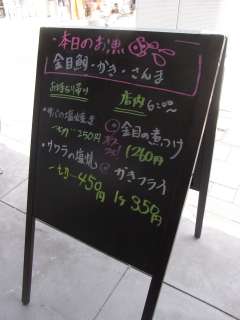 ・本日のお魚
金目鯛・かき・さんま
お持ち帰り
店内 6:00〜
・サバの塩焼き
一切 250円
・サワラの塩焼
一切 450円
金目の煮つけ
1260円
かきフライ
1ヶ 350円